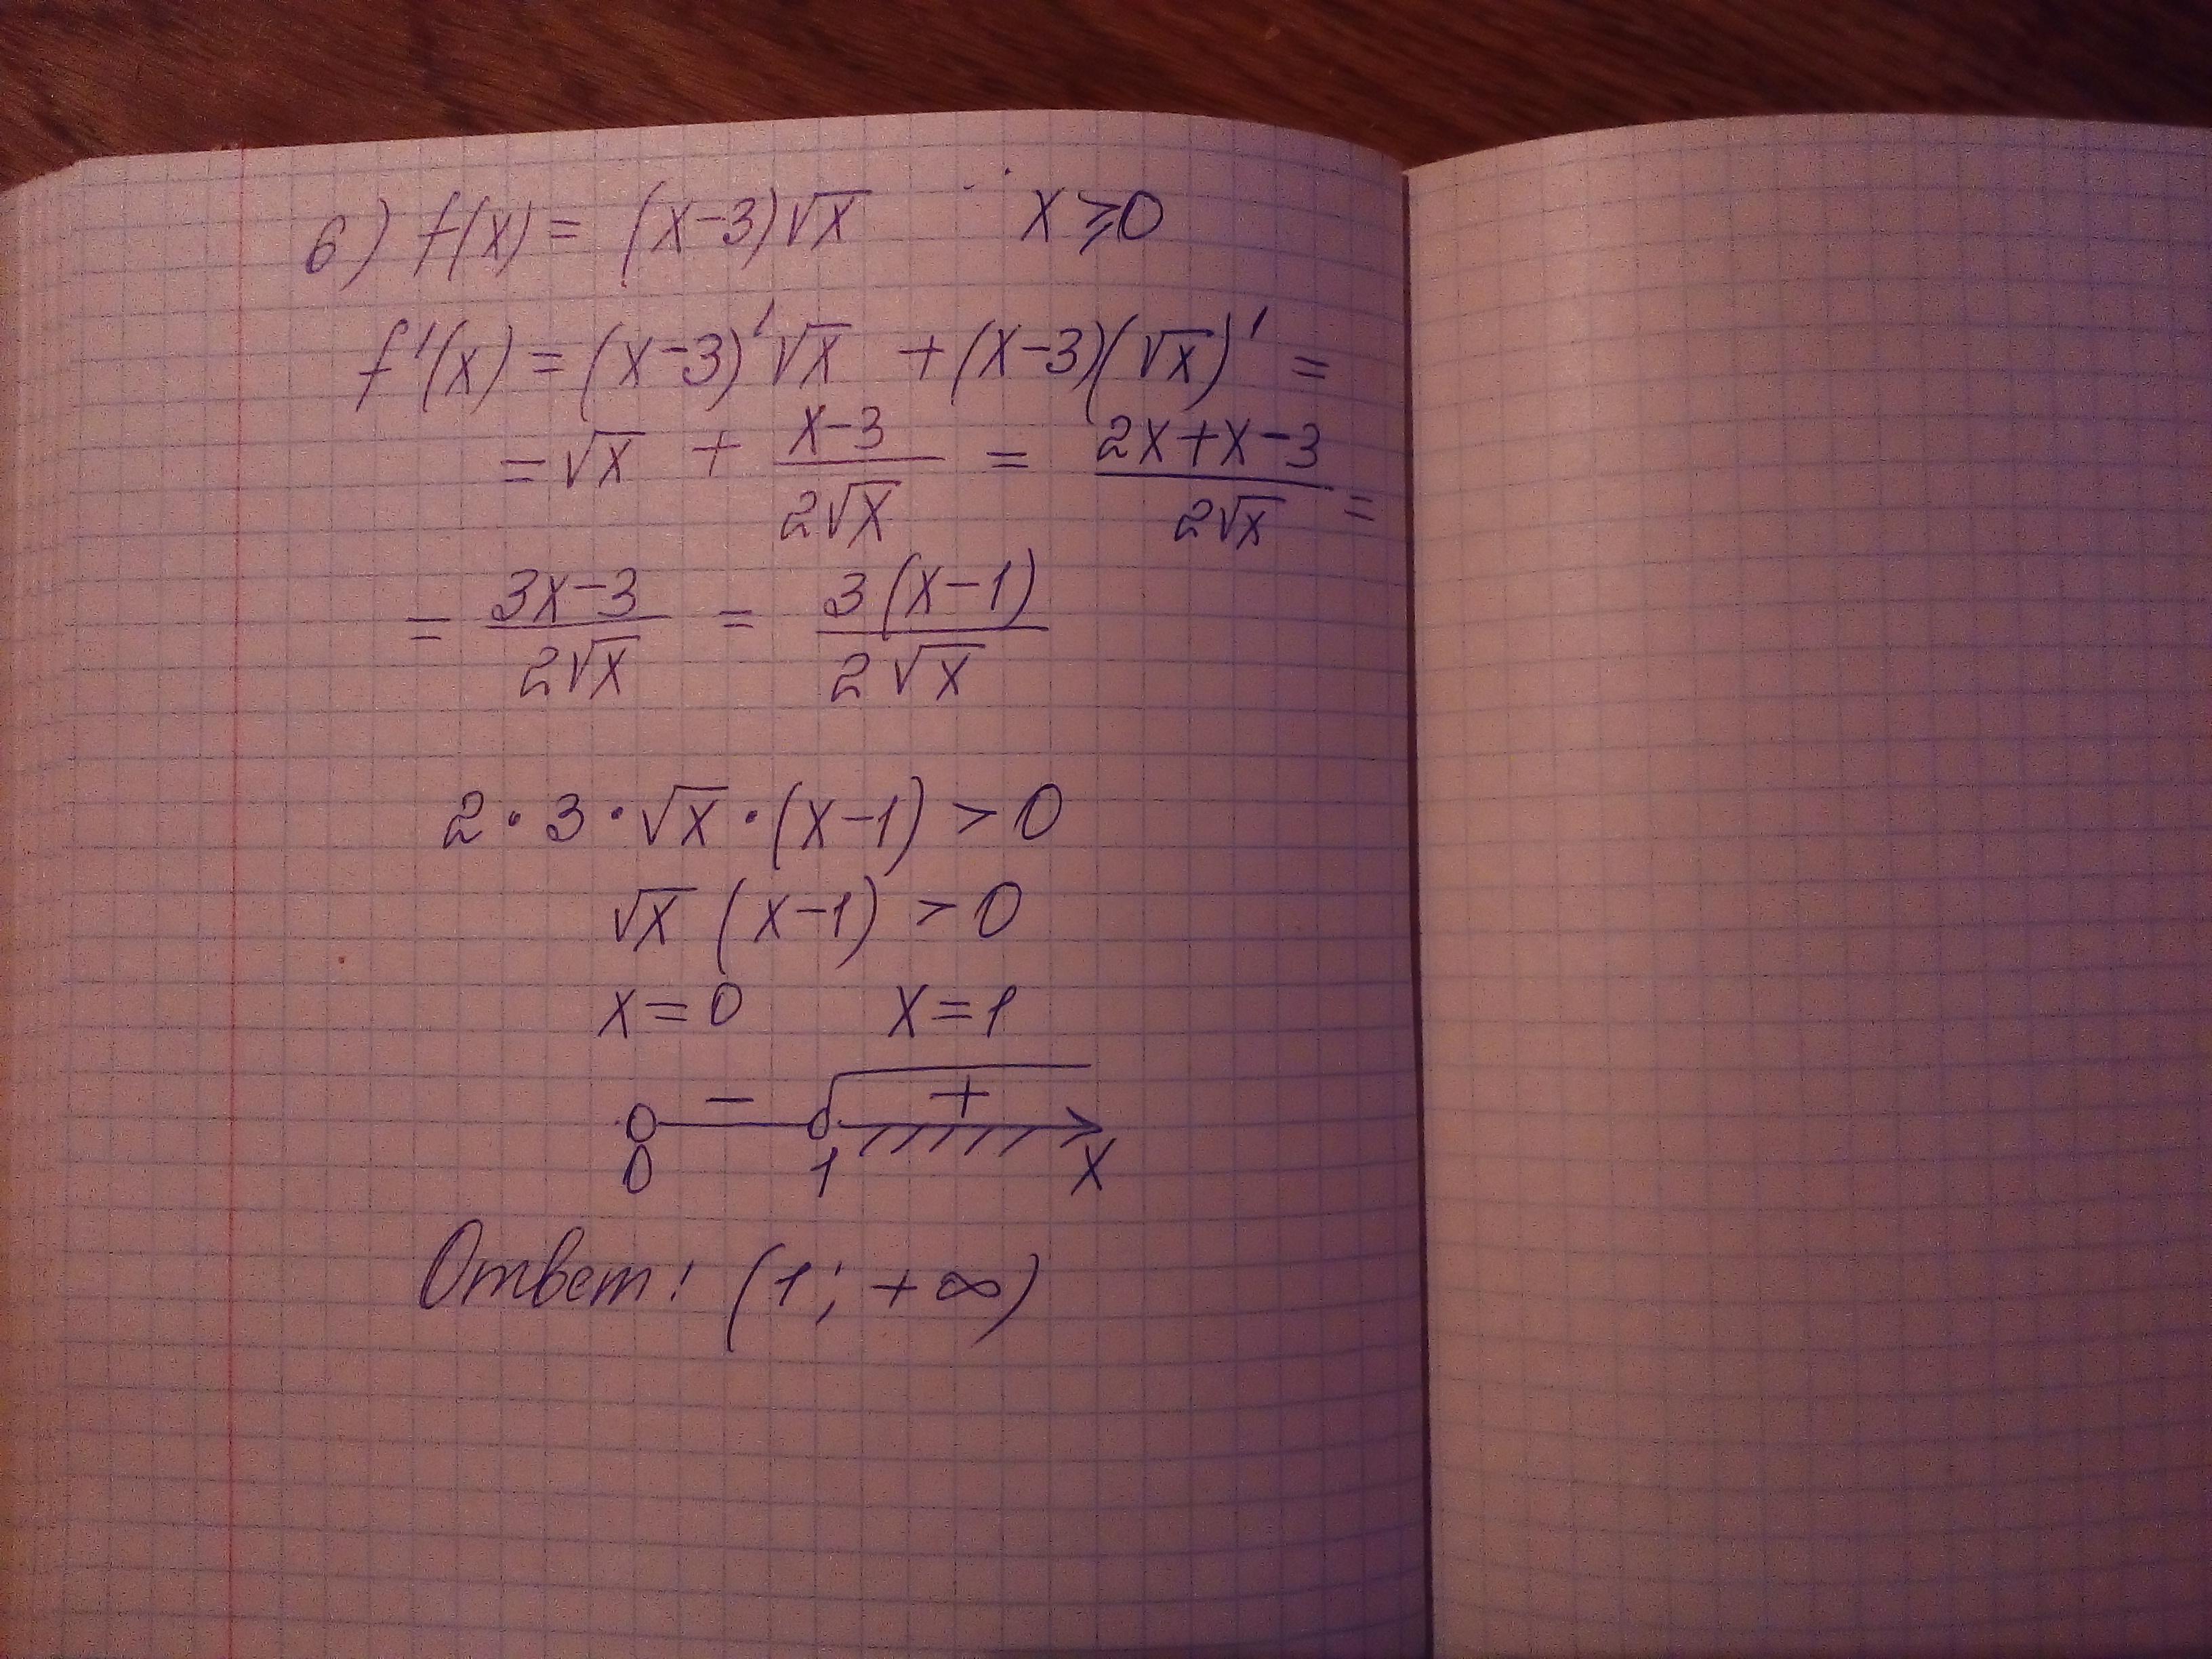 6) f(x) = (x-3)√x x ⩾ 0
f'(x) = (x-3)'√x + (x-3)(√x)' =
= √x + (x-3)/(2√x) = (2x+x-3)/(2√x) =
= (3x-3)/(2√x) = 3(x-1)/(2√x)
2 · 3 · √x · (x-1) > 0
√x (x-1) > 0
x = 0 x = 1
- +
0 1 x
Ответ: (1; +∞)